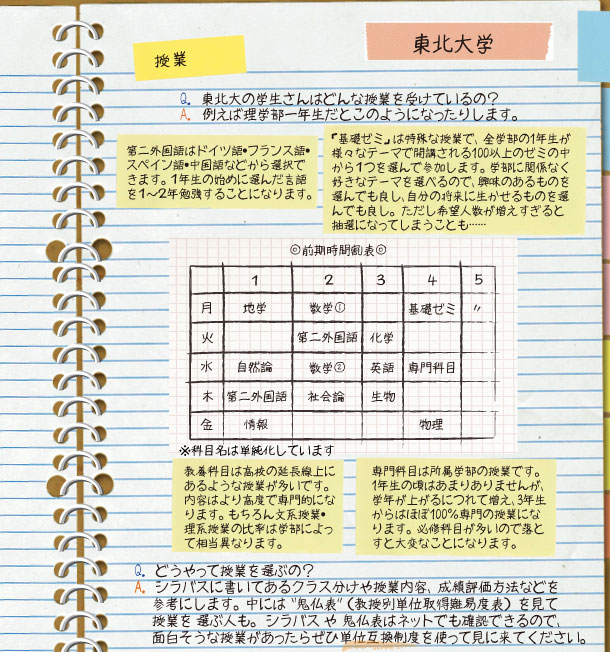 授業
東北大学
Q. 東北大の学生さんはどんな授業を受けているの?
A. 例えば理学部一年生だとこのようになったりします。
第二外国語はドイツ語・フランス語・
スペイン語・中国語などから選択で
きます。1年生の始めに選んだ言語
を1~2年勉強することになります。
『基礎ゼミ』は特殊な授業で、全学部の1年生が
様々なテーマで開講される100以上のゼミの中
から1つを選んで参加します。学部に関係なく
好きなテーマを選べるので、興味のあるものを
選んでも良し、自分の将来に生かせるものを選
んでも良し。ただし希望人数が増えすぎると
抽選になってしまうことも……
◎前期時間割表◎
1 2 3 4 5
月 地学 数学① 基礎ゼミ 〃
火 第二外国語 化学
水 自然論 数学② 英語 専門科目
木 第二外国語 社会論 生物
金 情報 物理
※科目名は単純化しています
教養科目は高校の延長線上に
あるような授業が多いです。
内容はより高度で専門的にな
ります。もちろん文系授業・
理系授業の比率は学部によっ
て相当異なります。
専門科目は所属学部の授業です。
1年生の頃はあまりありませんが、
学年が上がるにつれて増え、3年生
からはほぼ100%専門の授業にな
ります。必修科目が多いので落と
すと大変なことになります。
Q. どうやって授業を選ぶの?
A. シラバスに書いてあるクラス分けや授業内容、成績評価方法などを
参考にします。中には“鬼仏表”(教授別単位取得難易度表)を見て
授業を選ぶ人も。シラバスや鬼仏表はネットでも確認できるので、
面白そうな授業があったらぜひ単位互換制度を使って見に来てください。